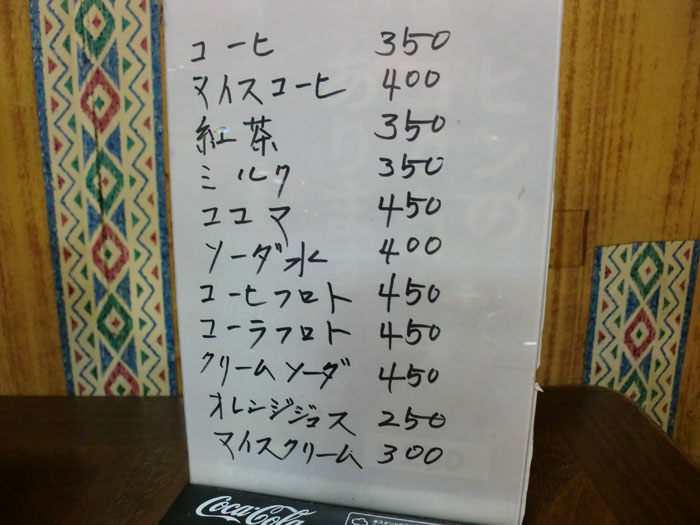 コーヒ 350
アイスコーヒ 400
紅茶 350
ミルク 350
ココア 450
ソーダ水 400
コーヒフロト 450
コーラフロト 450
クリームソーダ 450
オレンジジュス 250
アイスクリーム 300
Coca-Cola